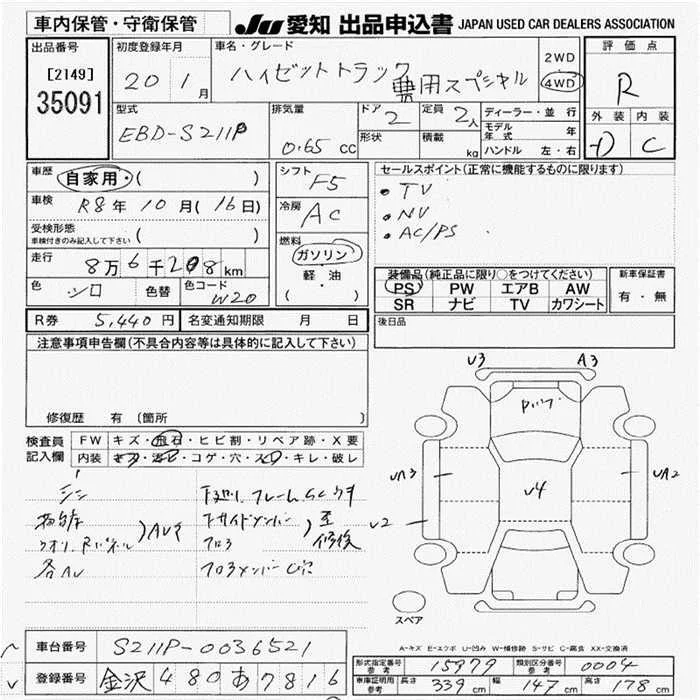 車内保管・守衛保管
JU 愛知 出品申込書 JAPAN USED CAR DEALERS ASSOCIATION
出品番号
[2149]
35091
初度登録年月
20 1月
車名・グレード
ハイゼットトラック
農用スペシャル
2WD
4WD
評価点
R
外装 内装
D C
型式
EBD-S211P
排気量
0.65 cc
ドア
2
形状
定員
2人
積載
kg
ディーラー・並行
モデル年式 年
ハンドル 左・右
車歴
自家用・( )
車検
R8年10月(16日)
受検形態
車検付きのみ記入して下さい ( )
走行
8万6千208km
色
シロ
色替
色コード
W20
シフト
F5
冷房
AC
燃料
ガソリン
軽・油
( )
セールスポイント(正常に機能するものに限ります)
・TV
・NV
・AC/PS
装備品(純正品に限り○をつけてください)
PS PW エアB AW
SR ナビ TV カワシート
新車保証書
有・無
後日品
R券 5,440円
名変通知期限 月 日
注意事項申告欄(不具合内容等は具体的に記入して下さい)
修復歴 有 (箇所 )
検査員記入欄
FW キズ・飛石・ヒビ割・リペア跡・X要
内装 キズ・汚レ・コゲ・穴・スレ・キレ・破レ
下廻リ フレーム
下サイドメンバー
フロア
フロアメンバー
至 修後
各AU
U3 A3
UA3
U4
UA2
U2
スペア
A-キズ E-エクボ U-凹み W-補修跡 S-サビ C-腐食 XX-交換済
車台番号 S211P-0036521
登録番号 金沢 480 あ 7816
形式指定番号 15979
類別区分番号 0004
車庫証明用参考 長さ 339cm 幅 147cm 高さ 178cm